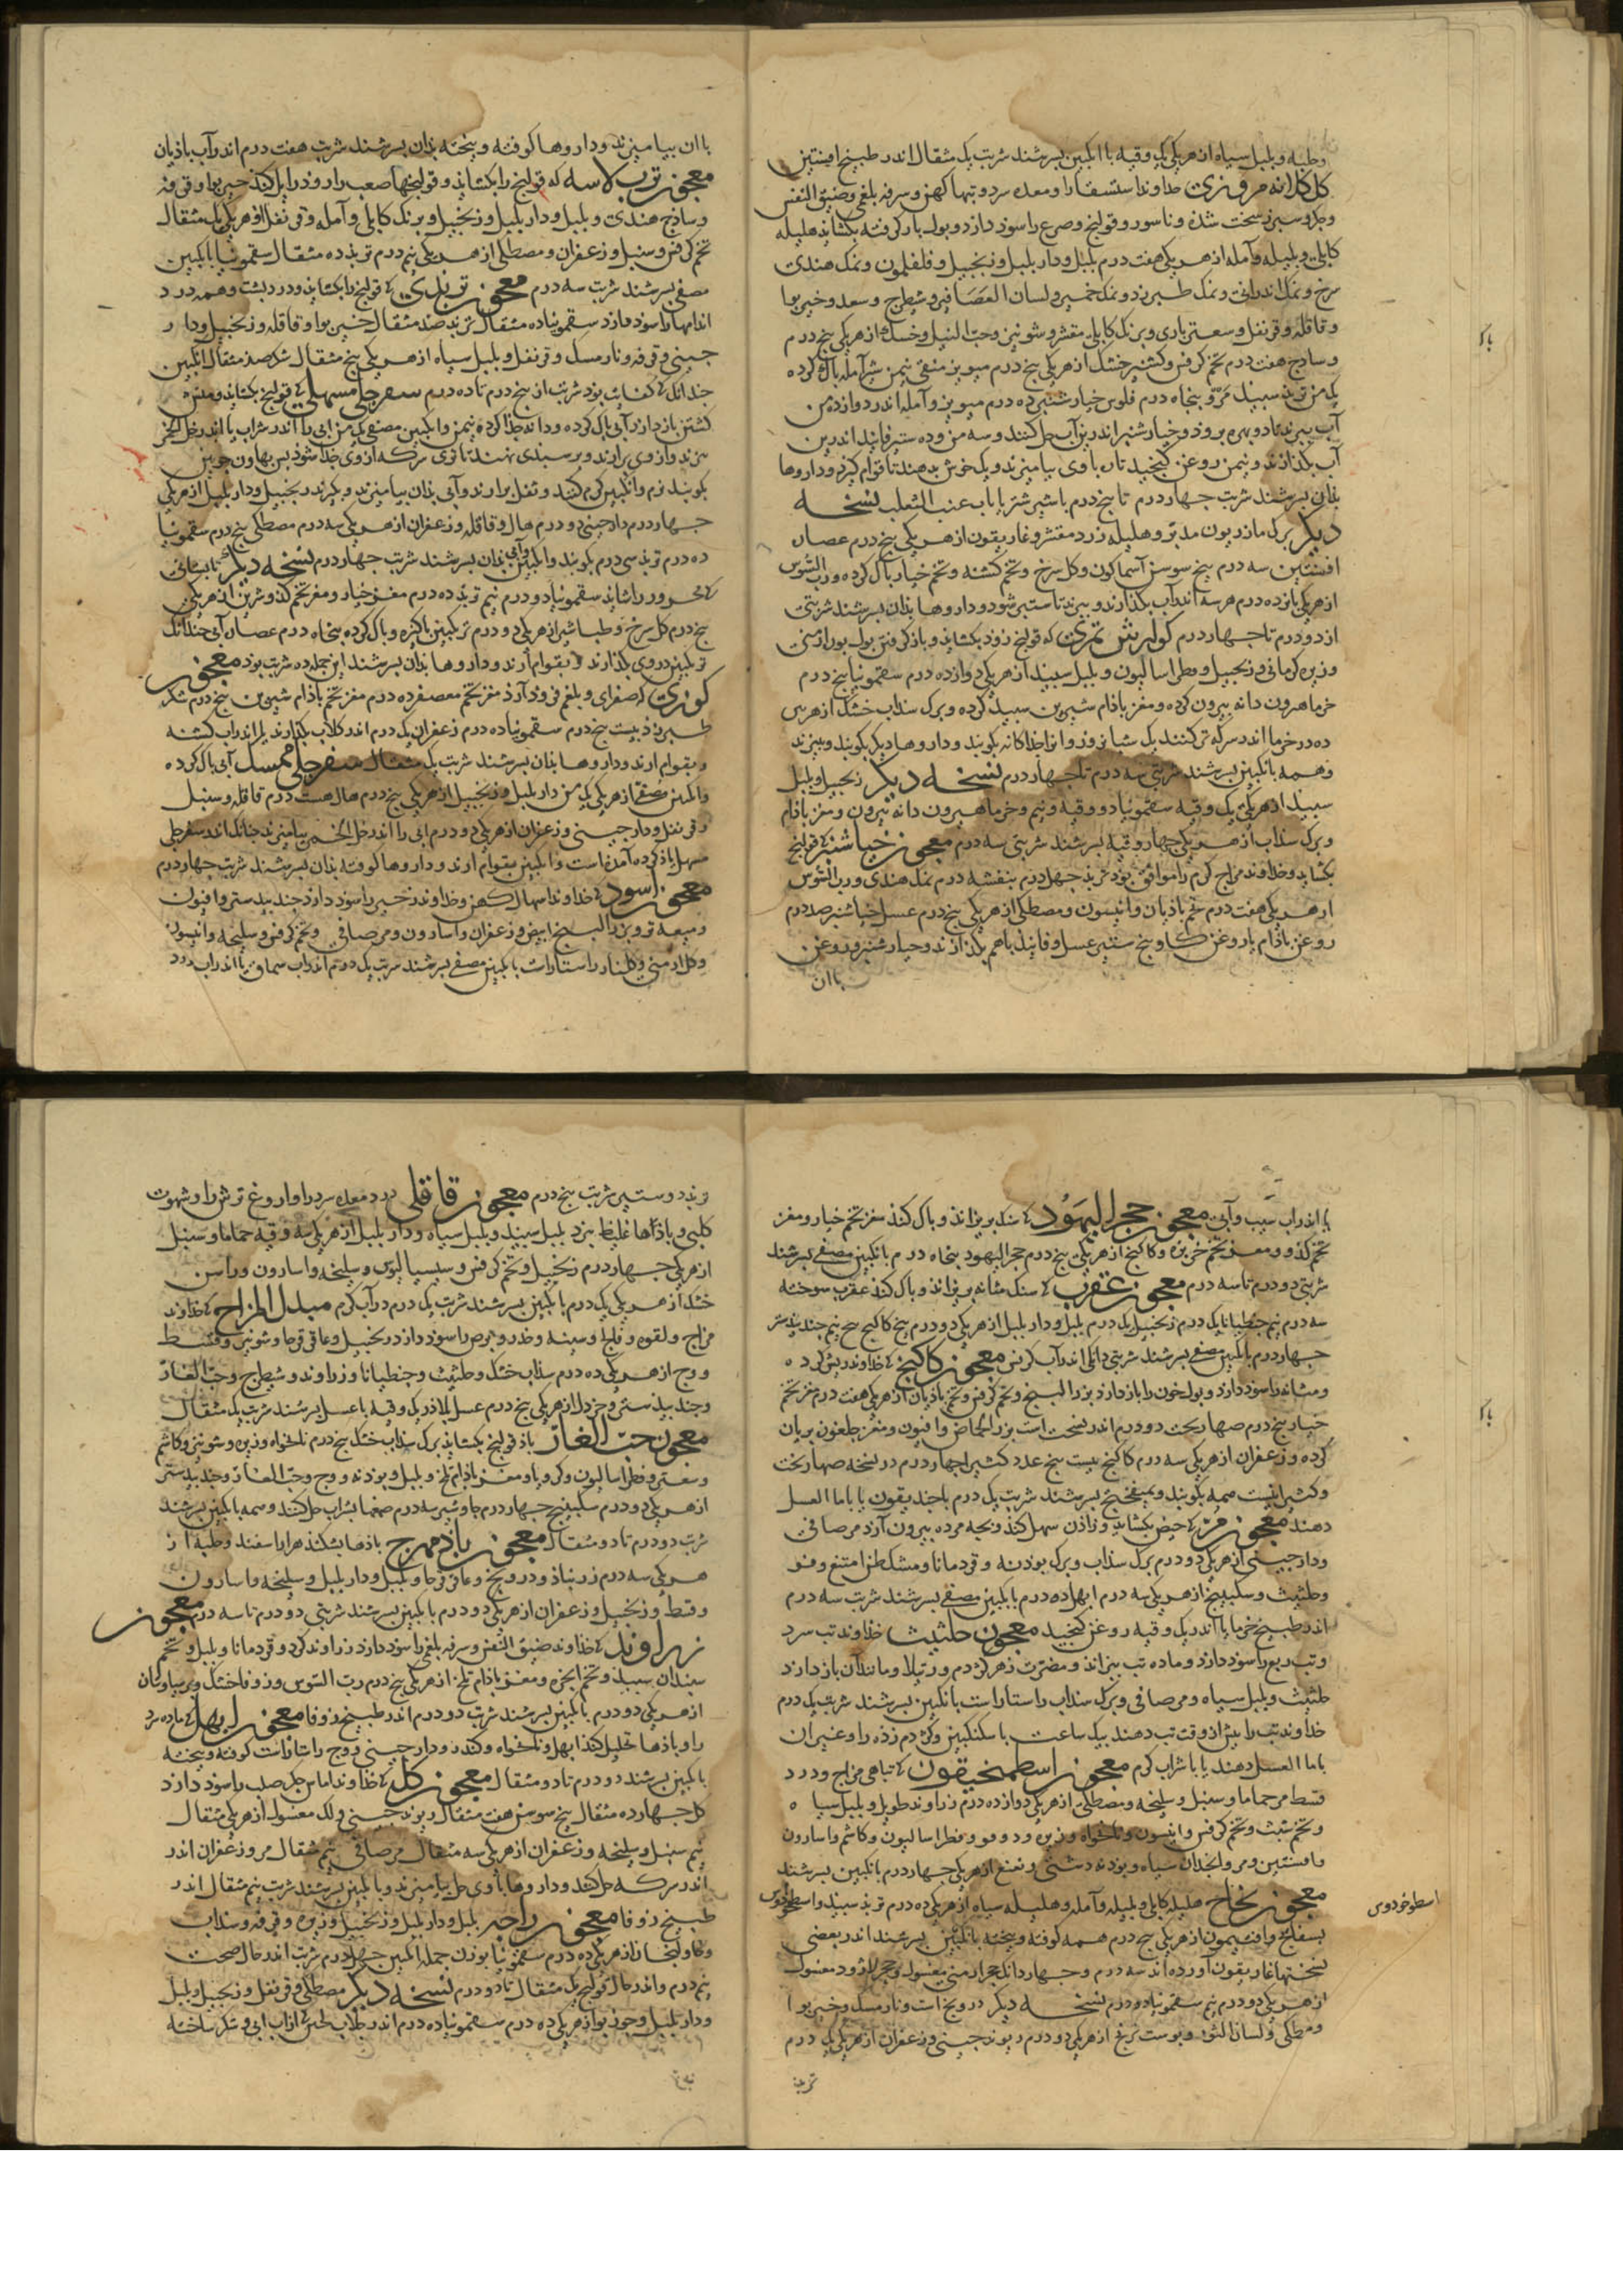 وحلبه و بلبل سیاه از هریکی یک وقیه با انکبین بسرشند شربت یک مثقال اندر طبیخ افسنتین
خداوند استسقا را و معده سرد و تبها کهن و سرفه بلغمی و ضیق النفس
و جکر و سبرز سخت شده و ناسور و قولنج و صرع را سوذ دارد و بول بار کرفته بکشاید هلیله
کابلی و بلیله و آمله از هریکی هفت درم بلبل و دار بلبل و زنجبیل و فلفلمون و نمک هندی
سرخ و نمک اندرانی و نمک طبرزد و نمک خمیر و لسان العصافیر و شیطرج و سعد و خیربوا
و قاقله و قرنفل و سعتر باری و برنک کابلی مقشر و شونیز و حب النیل و خسک از هریکی پنج درم
و ساذج هفت درم تخم کرفس و کشنیز خشک از هریکی پنج درم میویز منقی نیم من شیر آمله باک کرده
یک من تربذ سبیذ بنجاه درم فلوس خیارشنبر ده درم میویز و آمله اندر دوازده من
آب ببزند تا دو بهره بروذ و خیارشنبر اندرین آب حل کنند و سه من و ده ستیر فانیذ اندرین
آب بکذارند و نیم من روغن کنجید تازه باوی بیامیزند و یک جوش بدهند تا قوام کیرد و داروها
بذان بسرشند شربت جهار درم تا پنج درم با شیر شتر یا باب عنب الثعلب نسخه
دیکر برک مازریون مدبر و هلیله زرد مقشر و غاریقون از هریکی پنج درم عصاره
افسنتین سه درم بیخ سوسن آسمانکون و کل سرخ و تخم کشنه و تخم خیار باک کرده و رب السوس
از هریکی بانزده درم هر سه اندر آب بکذارند و ببزند تا ستبر شود و داروها بذان بسرشند شربتی
از دو درم تا جهار درم کوارش تمری که قولنج زود بکشاید و باذ کرفتن بول بوره ارمنی
و زیره کرمانی و زنجبیل و فطراسالیون و بلبل سبیذ از هریکی دوازده درم سقمونیا پنج درم
خرما هیرون دانه بیرون کرده و مغز باذام شیرین سبیذ کرده و برک سذاب خشک از هریکی
ده درم خرما اندر سرکه تر کنند یک شبانروز و انرا جذاکانه بکوبند و داروها دیکر بکوبند و ببیزند
و همه بانکبین بسرشند شربتی سه درم تا جهار درم نسخه دیکر زنجبیل و بلبل
سبیذ از هریکی یک وقیه سقمونیا دو وقیه و نیم و خرما هیرون دانه بیرون و مغز باذام
و برک سذاب از هریکی جهار وقیه بسرشند شربتی سه درم معجون خیارشنبر که قولنج
بکشاید و خداوند مزاج کرم را موافق بود تربذ جهل درم بنفشه ده درم نمک هندی و رب السوس
از هریکی هفت درم تخم باذیان و انیسون و مصطکی از هریکی پنج درم عسل خیارشنبر صد درم
روغن باذام یا روغن کاو پنج ستیر عسل و فانیذ باهم بکذارند و خیارشنبر و روغن
باان
باان بیامیزند و داروها کوفته و بیخته بذان بسرشند شربت هفت درم اندر آب باذیان
معجون که قولنج را بکشاید و قولنجها صعب را زود زایل کند خیربوا و قرفه
و ساذج هندی و بلبل و دار بلبل و زنجبیل و برنک کابلی و آمله و قرنفل از هریکی یک مثقال
تخم کرفس و سنبل و زعفران و مصطکی از هریکی نیم درم تربذ ده مثقال سقمونیا با انکبین
مصفی بسرشند شربت سه درم معجون تربذی که قولنج را بکشاید و درد بشت و همه درد
اندامها را سوذ دارد سقمونیا ده مثقال تربذ صد مثقال خیربوا و قاقله و زنجبیل و دار
جینی و قرفه و نارمسک و قرنفل و بلبل سیاه از هریکی پنج مثقال شکر صد مثقال انکبین
جندانک کفایت بود شربت از پنج درم تا ده درم سفرجلی مسهل که قولنج بکشاید و منش
کشتن باز دارد آبی باک کرده و دانه جذا کرده نیم من و انکبین مصفی یک من آبی را اندر شراب یا اندر خل الخمر
ببزند و از وی برآرند و بر سبذی نهند تا تری سرکه از وی جذا شوذ بس بهاون جوبین
بکوبند نرم و انکبین کرم کنند و ثفل بردارند و آبی بذان بیامیزند و بکیرند زنجبیل و دار بلبل از هریکی
جهار درم دارجینی دو درم هال و قاقله و زعفران از هریکی سه درم مصطکی پنج درم سقمونیا
ده درم تربذ سی درم بکوبند و انکبین وآبی بذان بسرشند شربت جهار درم نسخه دیکر تابستانی
که محرور را شاید سقمونیا دو درم نیم تربذ ده درم مغز خیار و مغز تخم کذو شیرین از هریکی
پنج درم کل سرخ و طباشیر از هریکی دو درم ترنکبین باکیزه و باک کرده بنجاه درم عصاره آبی جندانک
ترنکبین در وی بکذارند و بقوام آرند و داروها بذان بسرشند این جمله ده شربت بود معجون
که صفرای و بلغم فروذ آرذ مغز تخم معصفر ده درم مغز تخم باذام شیرین پنج درم شکر
طبرزذ بیست پنج درم سقمونیا ده درم زعفران یک درم اندر کلاب بکذارند یا اندر آب کشنه
و بقوام ارند و داروها بذان بسرشند شربت یک مثقال سفرجلی ممسک آبی باک کرده
و انکبین از هریکی یک من دار بلبل و زنجبیل از هریکی پنج درم هال هشت درم قاقله و سنبل
و قرنفل و دارجینی و زعفران از هریکی دو درم ابی را اندر خل الخمر بیامیزند جنانک اندر سفرجلی
مسهل یاذ کرده آمذه است و انکبین بقوام ارند و داروها کوفته بذان بسرشند شربت جهار درم
معجون اسود که خداوند اسهال کهن و خداوند زحیر را سوذ دارد جند بیدستر و افیون
و میعه تر و بزر البنج ابیض و زعفران و اسارون و مر صافی و تخم کرفس و سلیخه و انیسون
و کل ارمنی و کلنار راستاراست بانکبین مصفی بسرشند شربت یک درم اندر آب سماق یا اندر آب
یا اندر آب سیب و آبی معجون حجر الیهود که سنک بریزاند و باک کند مغز تخم خیار و مغز
تخم کذو و مغز تخم خربزه و کاکنج از هریکی پنج درم حجر الیهود بنجاه درم بانکبین مصفی بسرشند
شربتی دو درم تا سه درم معجون عقرب که سنک مثانه بریزاند و باک کند عقرب سوخته
سه درم نیم جنطیانا یک درم زنجبیل یک درم بلبل و دار بلبل از هریکی دو درم بیخ کاکنج پنج نیم جند بیدستر
جهار درم بانکبین مصفی بسرشند شربتی دانکی اندر آب کرفس معجون کاکنج که خداوند ریش کرده
و مثانه را سوذ دارد و بول خون را باز دارد بزر البنج و تخم کرفس و تخم باذیان از هریکی هفت درم مغز تخم
خیار پنج درم صهاربخت دو درم اندر نسخت است بزر الحماض و افیون و مغز جلغوزه بریان
کرده و زعفران از هریکی سه درم کاکنج بیست پنج عدد کثیرا جهار درم در نسخه صهاربخت
و کثیرا نیست همه بکوبند و بمیفختج بسرشند شربت یک درم با جندیقون یا با ما العسل
دهند معجون مر که حیض بکشاید و زاذن سهل کند و بجه مرده بیرون آرد مر صافی
و دارجینی از هریکی دو درم برک سذاب و برک بوذنه و قردمانا و مشکطرامشیغ و فوه
و حلتیت و سکبینج از هریکی سه درم ابهل ده درم بانکبین مصفی بسرشند شربت سه درم
اندر طبیخ خرما یا اندر یک وقیه روغن کنجید معجون حلتیت خذاوند تب سرد
و تب ربع را سوذ دارد و ماده تب ببزاند و مضرت زهر کژدم و رتیلا و مانند آن باز دارد
حلتیت و بلبل سیاه و مر صافی و برک سذاب راستاراست بانکبین بسرشند شربت یک درم
خداوند تب را بیش از وقت تب دهند بیک ساعت با سکنکبین و کژدم زده را و غیر ان
با ما العسل دهند یا با شراب کرم معجون اسطمخیقون که تباهی مزاج و درد
قسط مر حماما و سنبل و سلیخه و مصطکی از هریکی دوازده درم زراوند طویل و بلبل سیاه
و تخم شبت و تخم کرفس و انیسون و نانخواه و زیره و دوقو و فطراسالیون و کاشم و اسارون
و افسنتین و مرو انجدان سیاه و بوذنه دشتی و نعنع از هریکی جهار درم بانکبین بسرشند
معجون نجاح هلیله کابلی و بلیله و آمله و هلیله سیاه از هریکی ده درم تربذ سبیذ و اسطوخودوس
اسطوخودوس
بسفایج و افتیمون از هریکی پنج درم همه کوفته و بیخته بانکبین بسرشند اندر بعضی
نسختها غاریقون آورده اند سه درم و جهار دانک حجر ارمنی مغسول و حجر لاژورد مغسول
از هریکی دو درم نیم سقمونیا دو درم نسخه دیکر درونج است و نارمسک و خیربوا
و مصطکی و لسان الثور و بوست ترنج از هریکی دو درم ریوند جینی و زعفران از هریکی یک درم
تربذ
تربذ دو ستیر شربت پنج درم معجون قاقلی درد معده سرد را و اروغ ترش را و شهوت
کلبی و باذها غلیظ ببرد بلبل سبیذ و بلبل سیاه و دار بلبل از هریکی سه وقیه حماما و سنبل
از هریکی جهار درم زنجبیل و تخم کرفس و سیسالیوس و سلیخه و اسارون و راسن
خشک از هریکی یک درم بانکبین بسرشند شربت یک درم در آب کرم مبدل المزاج که خداوند
فالج و لقوه و خدر و برص را سوذ دارد زنجبیل و عاقرقرحا و شونیز و قسط
و وج از هریکی ده درم سذاب خشک و حلتیت و جنطیانا و زراوند و شیطرج و حب الغار
و جند بیدستر و خردل از هریکی پنج درم عسل بلاذر یک وقیه با عسل بسرشند شربت یک مثقال
معجون حب الغار باذ قولنج بکشاید برک سذاب خشک پنج درم نانخواه و زیره و شونیز و کاشم
و سعتر و فطراسالیون و کرویا و مغز باذام تلخ و بلبل و بوذنه و وج و حب الغار و جند بیدستر
از هریکی دو درم سکبینج جهار درم جاوشیر سه درم صمغها بشراب حل کنند و همه بانکبین بسرشند
شربت دو درم تا دو مثقال معجون باذمهرج باذها بشکند هزاراسفند و حلبه از
هریکی سه درم زرنباذ و درونج و عاقرقرحا و بلبل و دار بلبل و سلیخه و اسارون
و قسط و زنجبیل و زعفران از هریکی دو درم بانکبین بسرشند شربتی دو درم تا سه درم معجون
زراوند که خداوند ضیق النفس و سرفه بلغمی را سوذ دارد زراوند کرد و قردمانا و بلبل و تخم
سبندان سبیذ و تخم انجره و مغز باذام تلخ از هریکی پنج درم رب السوس و زوفا خشک و برسیاوشان
از هریکی دو درم بانکبین بسرشند شربت دو درم اندر طبیخ زوفا معجون ابهل که ماده سرد
را و باذها تحلیل کند ابهل و نانخواه و کندر و دارجینی و وج راستاراست کوفته و بیخته
بانکبین بسرشند دو درم تا دو مثقال معجون کل که خداوند اماس جکر صلب را سوذ دارد
کل جهارده مثقال بیخ سوسن هفت مثقال ریوند جینی و لک مغسول از هریکی مثقال
نیم سنبل و سلیخه و زعفران از هریکی سه مثقال مر صافی نیم مثقال مر و زعفران اندر
اندر سرکه حل کنند و داروها باوی حل بیامیزند و بانکبین بسرشند شربت نیم مثقال اندر
طبیخ زوفا معجون بلبل و دار بلبل و زنجبیل و زیره و قرفه و سذاب
از هریکی ده درم سقمونیا بوزن جمله انکبین جهل درم شربت اندر حال صحت
نیم درم و اندر حال قولنج یک مثقال تا دو درم نسخه دیکر مصطکی و قرنفل و زنجبیل و بلبل
و دار بلبل و جوز بوا از هریکی ده درم سقمونیا ده درم اندر جلاب که از آب آبی و شکر ساخته